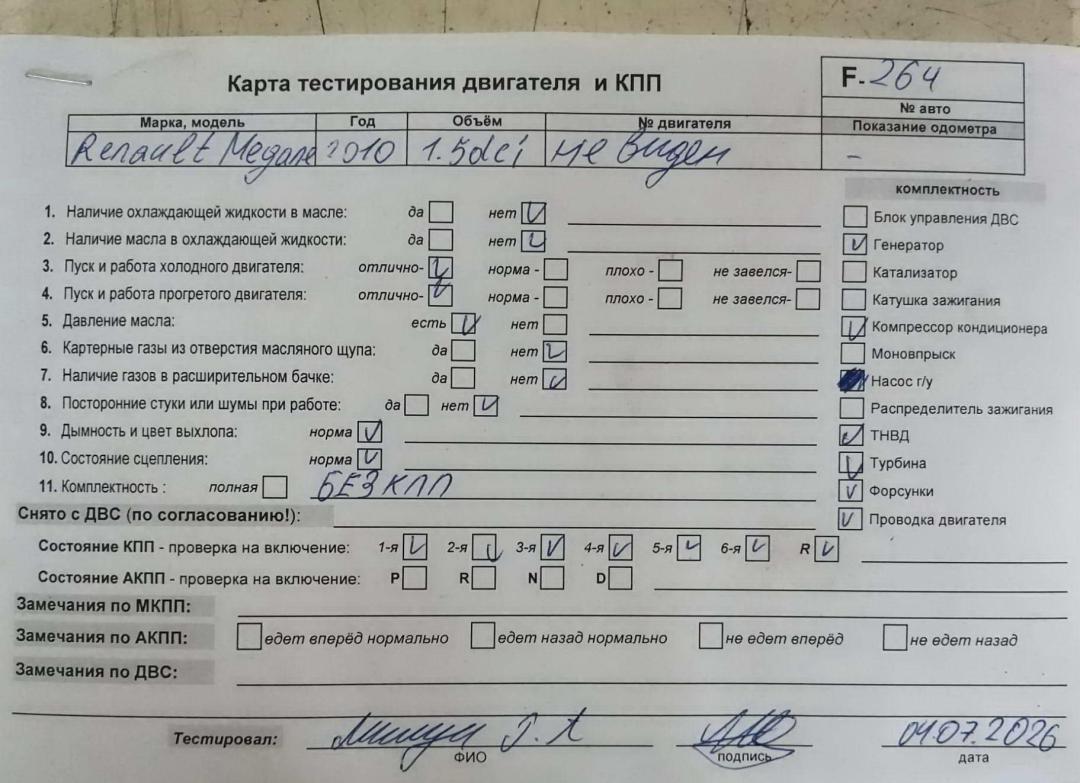 Карта тестирования двигателя и КПП
F-264
№ авто
Марка, модель Год Объём № двигателя Показание одометра
Renault Megane 2010 1.5dci не виден -
комплектность
1. Наличие охлаждающей жидкости в масле: да нет
Блок управления ДВС
2. Наличие масла в охлаждающей жидкости: да нет
Генератор
3. Пуск и работа холодного двигателя: отлично- норма - плохо - не завелся-
Катализатор
4. Пуск и работа прогретого двигателя: отлично- норма - плохо - не завелся-
Катушка зажигания
5. Давление масла: есть нет
Компрессор кондиционера
6. Картерные газы из отверстия масляного щупа: да нет
Моновпрыск
7. Наличие газов в расширительном бачке: да нет
Насос г/у
8. Посторонние стуки или шумы при работе: да нет
Распределитель зажигания
9. Дымность и цвет выхлопа: норма
ТНВД
10. Состояние сцепления: норма
Турбина
11. Комплектность : полная БЕЗ КПП
Форсунки
Снято с ДВС (по согласованию!):
Проводка двигателя
Состояние КПП - проверка на включение: 1-я 2-я 3-я 4-я 5-я 6-я R
Состояние АКПП - проверка на включение: P R N D
Замечания по МКПП:
Замечания по АКПП: едет вперёд нормально едет назад нормально не едет вперёд не едет назад
Замечания по ДВС:
Тестировал: 04.07.2026
ФИО подпись дата